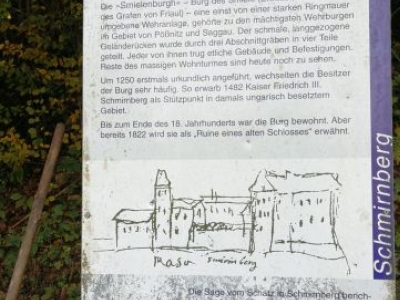 Die »Smielenburgh« – Burg des Smiele
des Grafen von Friaul) – eine einst von einer starken Ringmauer
umgebene Wehranlage, gehörte zu den mächtigsten Wehrburgen
im Gebiet von Pößnitz und Saggau. Der schmale, langgezogene
Geländerücken wurde durch drei Abschnittgräben in vier Teile
geteilt. Jeder von ihnen trug etliche Gebäude und Befestigungen.
Reste des massigen Wohnturmes sind heute noch zu sehen.
Um 1250 erstmals urkundlich angeführt, wechselten die Besitzer
der Burg sehr häufig. So erwarb 1482 Kaiser Friedrich III.
Schmirnberg als Stützpunkt in damals ungarisch besetztem
Gebiet.
Bis zum Ende des 18. Jahrhunderts war die Burg bewohnt. Aber
bereits 1822 wird sie als „Ruine eines alten Schlosses" erwähnt.
Schmirnberg
Die Sage vom Schatz in Schmirnberg berich-